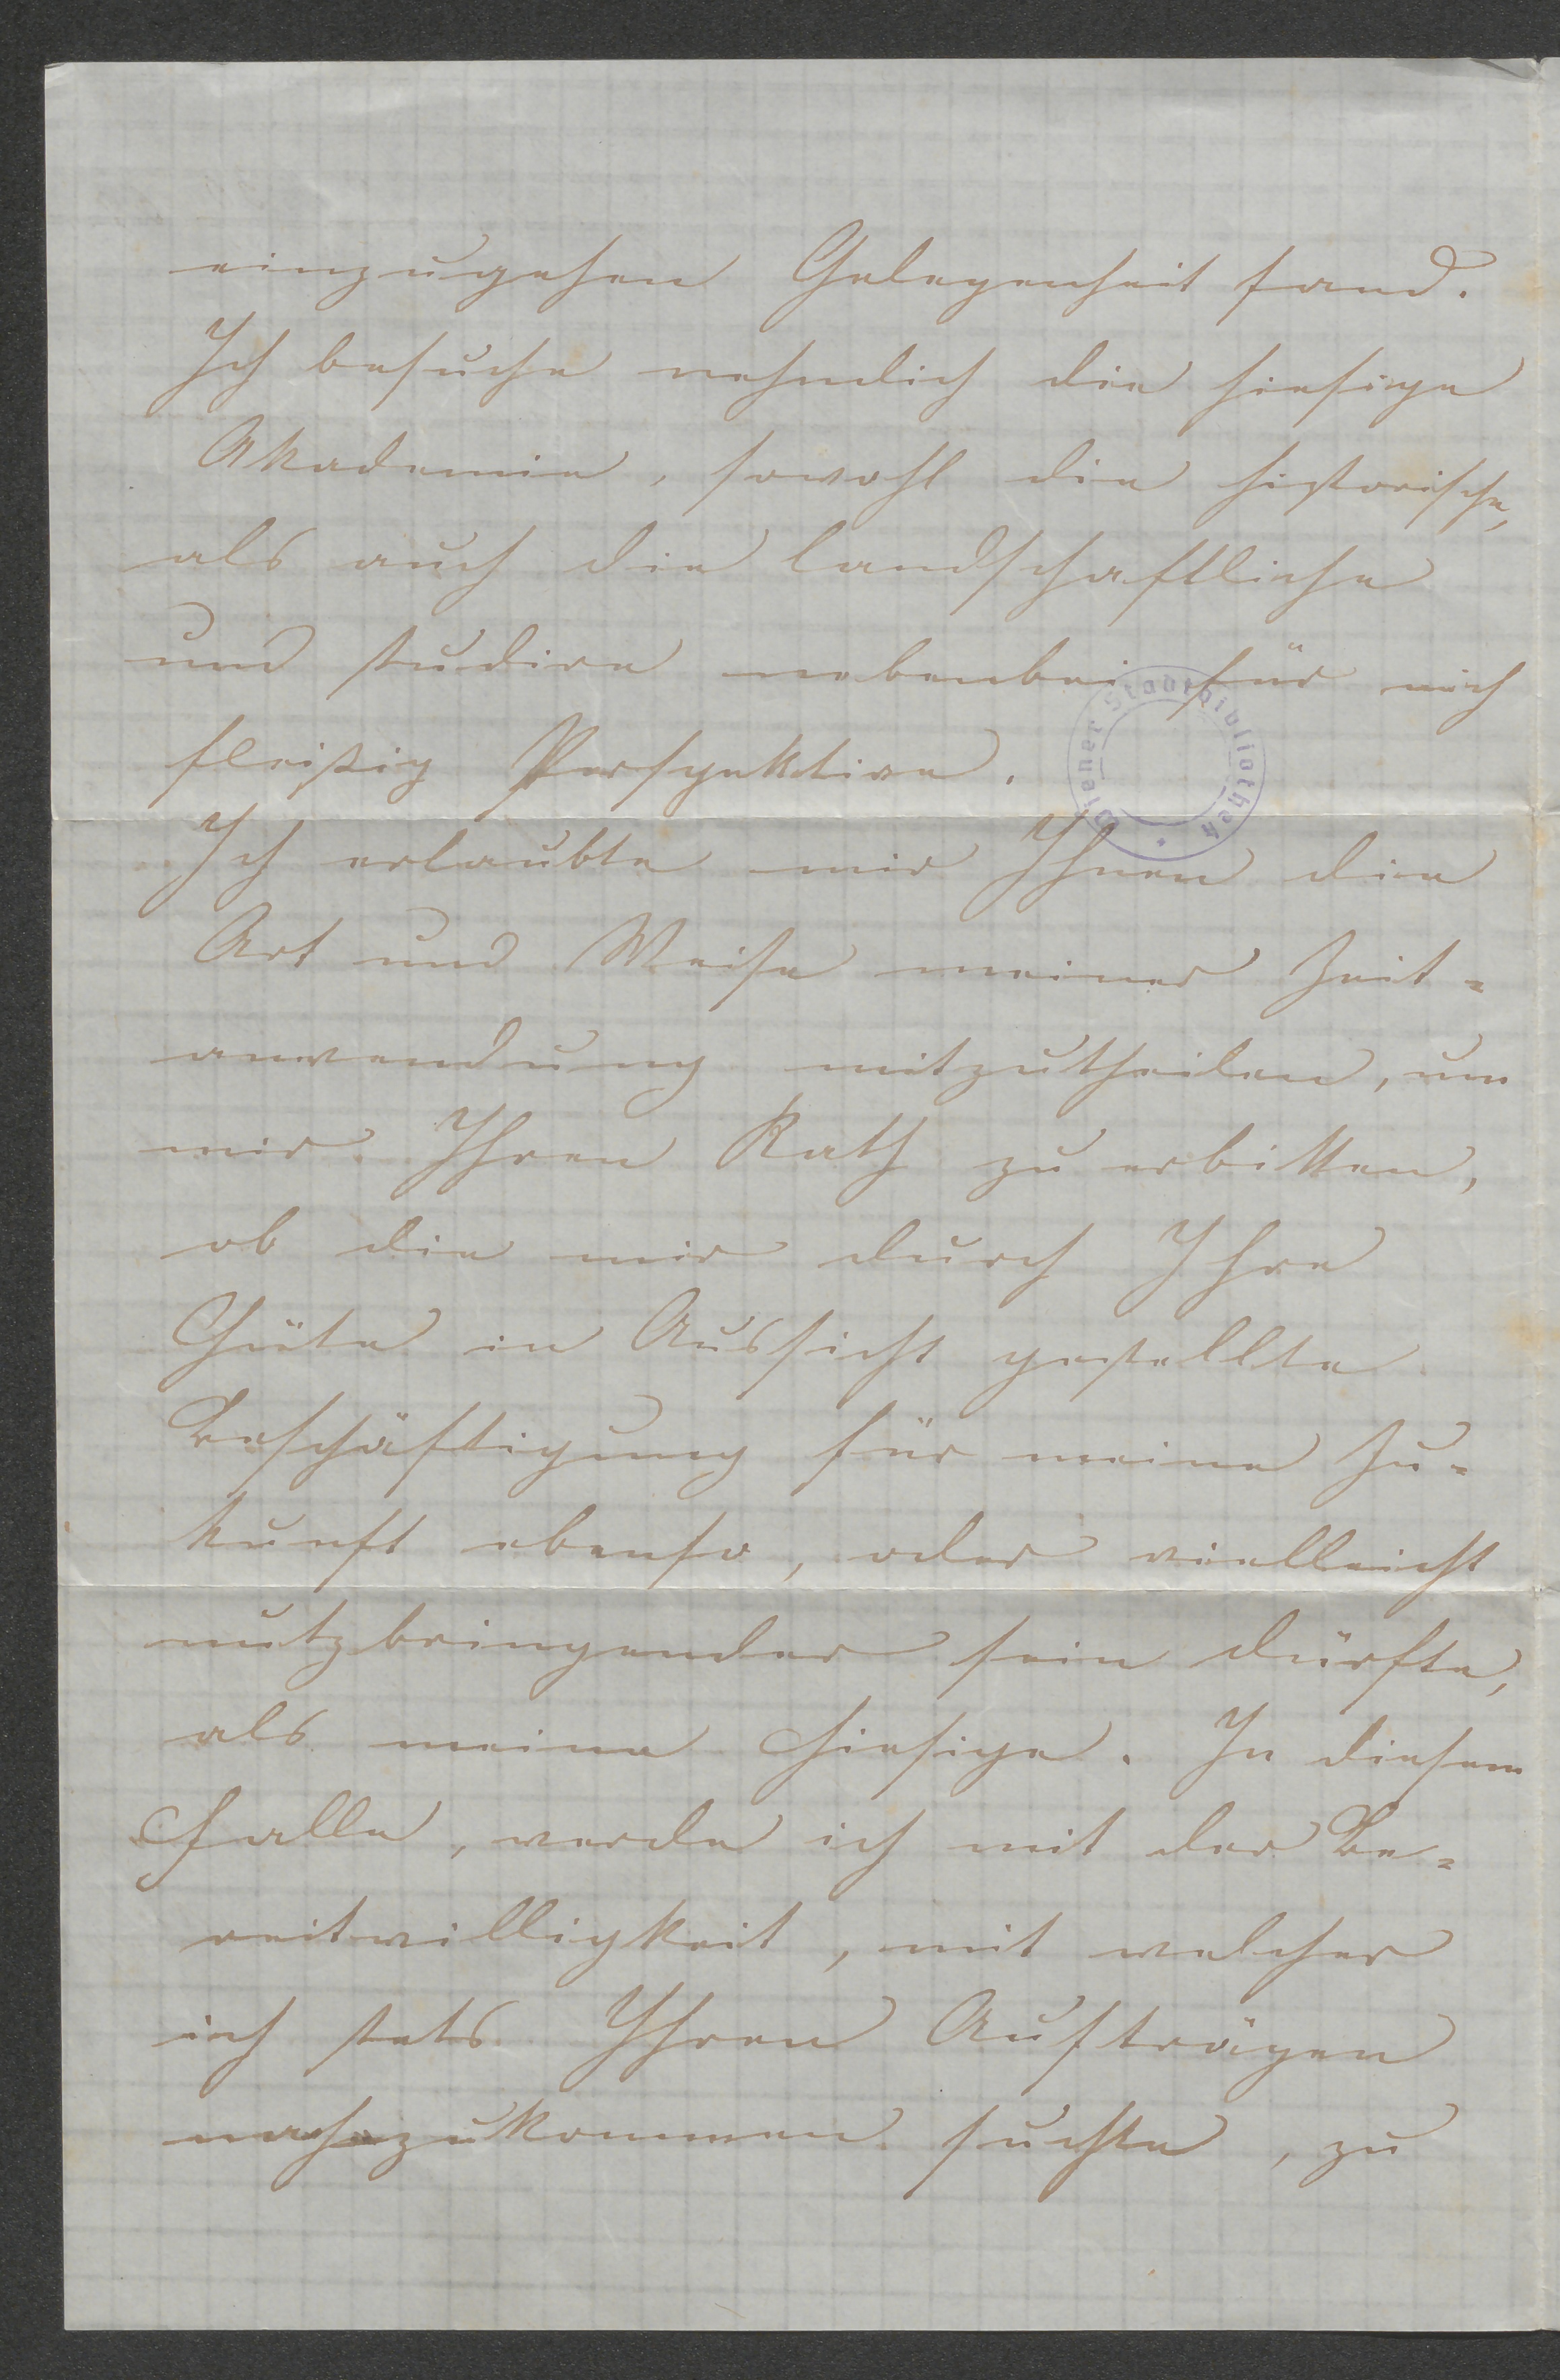 einzugehen Gelegenheit fand.
Ich besuche nehmlich die hiesige
Akademie, sowohl die historische,
als auch die landschaftliche
und studire nebenbei für mich
fleißig Perspektive.
Wiener Stadtbibliothek
Ich erlaubte mir Ihnen die
Art und Weise meiner Zeit-
anwendung mitzutheilen, um
mir Ihren Rath zu erbitten,
ob die mir durch Ihre
Güte in Aussicht gestellte
Beschäftigung für meine Zu-
kunft ebenso, oder vielleicht
nutzbringender sein dürfte,
als meine Hiesige. In diesem
Falle, werde ich mit der Be-
reitwilligkeit, mit welcher
ich stets Ihren Aufträgen
nachzukommen suchte, zu